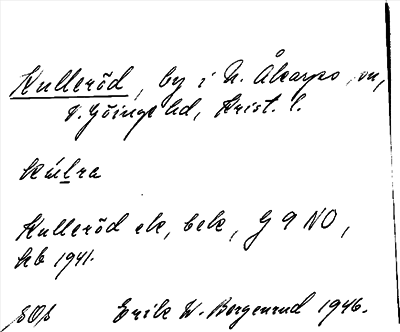 Kulleröd, by i N. Åkarps sn,
V. Göinge hd, Krist. l.
kúlra
Kulleröd ek, bek, G 9 NO,
hkb 1941.
SOS Erik W. Bergenrud 1946.